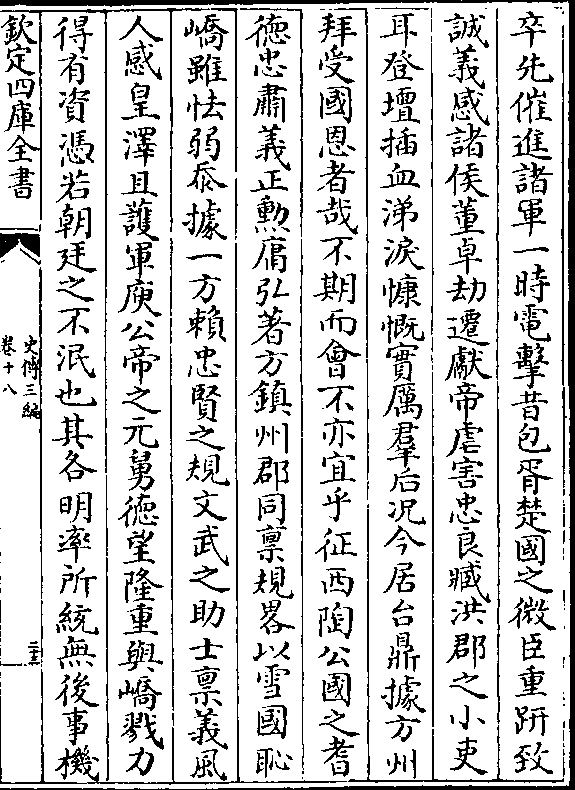 卒先催進諸軍一時電擊昔包胥楚國之微臣重趼致
誠義感諸侯董卓劫遷獻帝虐害忠良臧洪郡之小吏
耳登壇插血涕淚慷慨實厲羣后況今居台鼎據方州
拜受國恩者哉不期而會不亦宜乎征西陶公國之耆
德忠肅義正勲庸弘著方鎮州郡同禀規畧以雪國恥
嶠雖怯弱忝據一方賴忠賢之規文武之助士禀義風
人感皇澤且護軍庾公帝之元舅德望隆重與嶠戮力
得有資憑若朝廷之不泯也其各明率所統無後事機
欽定四庫全書
史傳三編
卷十八
二十三